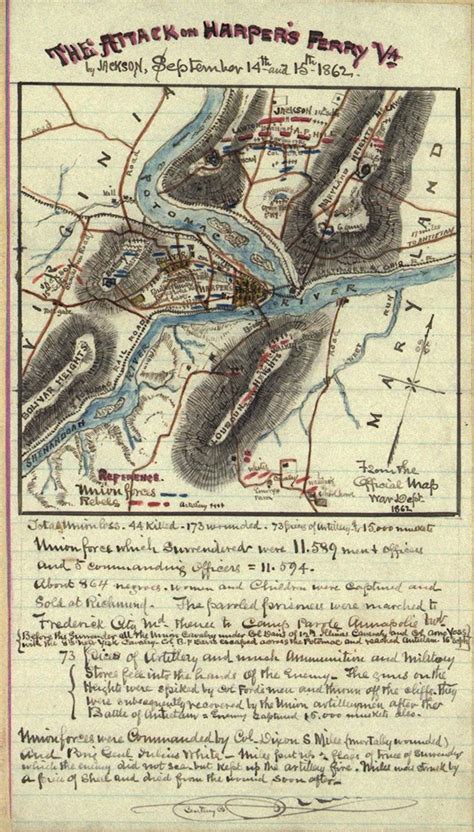 The Attack on Harper's Ferry Va
by Jackson, September 14th and 15th 1862.
VIRGINIA
Road
Mill
POTOMAC
JACKSON
A.P. HILL
MARYLAND HEIGHTS
MARYLAND
RIVER
Road
Run
BOLIVAR HEIGHTS
RAIL ROAD
SHENANDOAH
RIVER
LOUDOUN HEIGHTS
Reference.
Union forces
Rebels
Artillery
From the
Official Map
War Dept.
1862
Total Union loss. 44 killed. 173 wounded. 73 pieces of Artillery & 15,000 muskets
Union force which surrendered were 11.589 men & officers
And 5 commanding officers = 11.594.
About 864 negroes. women and children were captured and
sold at Richmond. The paroled prisoners were marched to
Frederick City Md thence to Camp Parole Annapolis
Before the surrender all the Union Cavalry under Col Davis of 12th Illinois Cavalry and Col
with the 8 New York Cavalry. Col B.F. Davis escaped across the Potomac and reached
73 pieces of Artillery and much Ammunition and Military
Stores fell into the hands of the Enemy - The guns on the
Heights were spiked by Col Fords men and thrown off the cliffs. they
were subsequently recovered by the Union artillerymen after the
Battle of Antietam = Enemy captured 15.000 muskets also.
Union forces were Commanded by Col Dixon S Miles (mortally wounded)
And Brig Genl Julius White - Miles put up a flag of Truce & Surrender
which the enemy did not see. but kept up the artillery fire. Miles was struck by
a piece of Shell and died from the wound soon after -